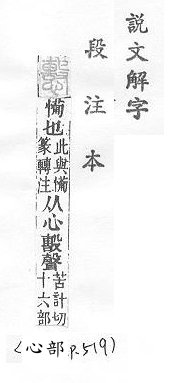 說文解字
段注本
也此與
篆轉注
从心毄聲
苦計切
十六部
(心部 P.519)